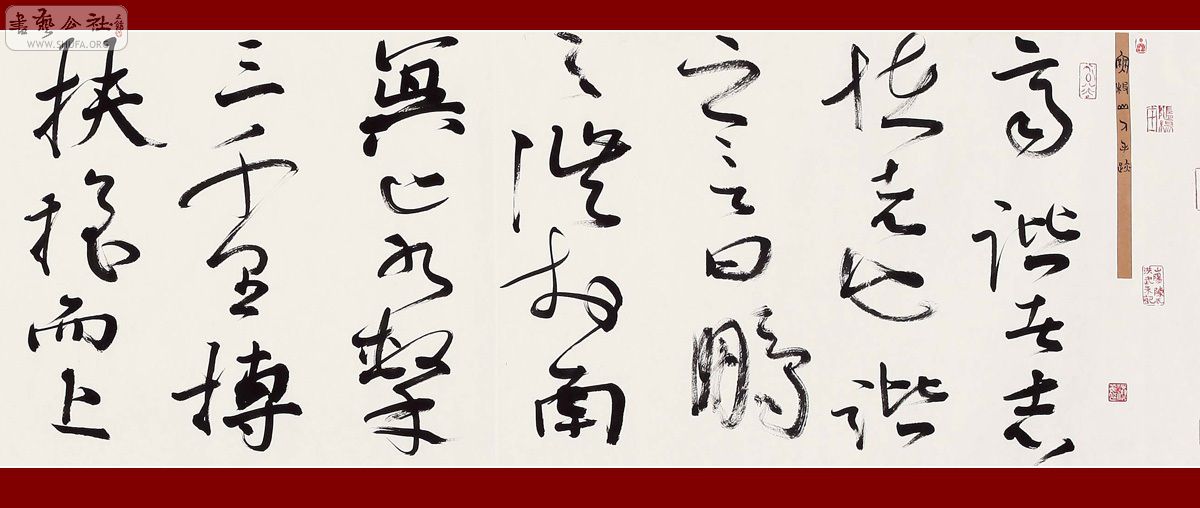 齊諧者志
怪者也諧
之言曰鵬
之徙於南
冥也水擊
三千里摶
扶搖而上
書藝公社
WWW.SHUFA.ORG